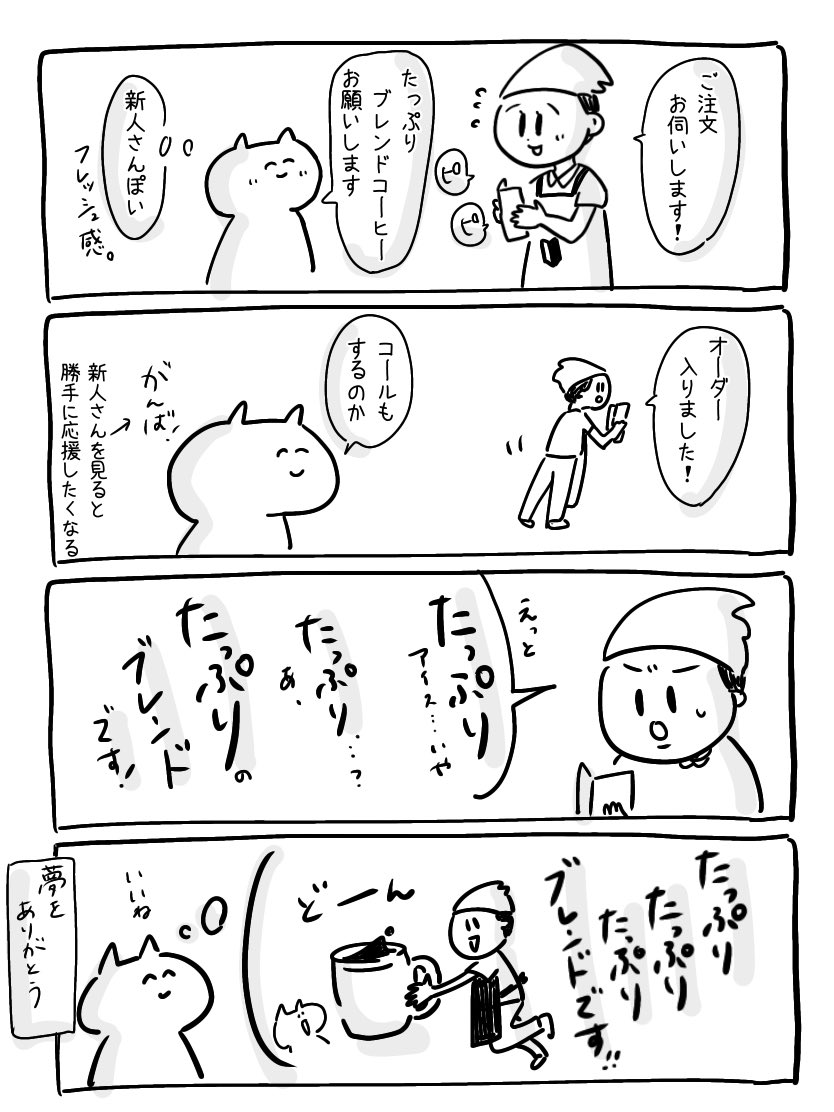 ご注文
お伺いします!
ピ
ピ
たっぷり
ブレンドコーヒー
お願いします
新人さんぽい
フレッシュ感。
オーダー
入りました!
コールも
するのか
がんば!
新人さんを見ると
勝手に応援したくなる
えっと
たっぷり
アイス…いや
たっぷり…?
あ、
たっぷりの
ブレンド
です!
たっぷり
たっぷり
たっぷり
ブレンドです!!
どーん
いいね
夢を
ありがとう